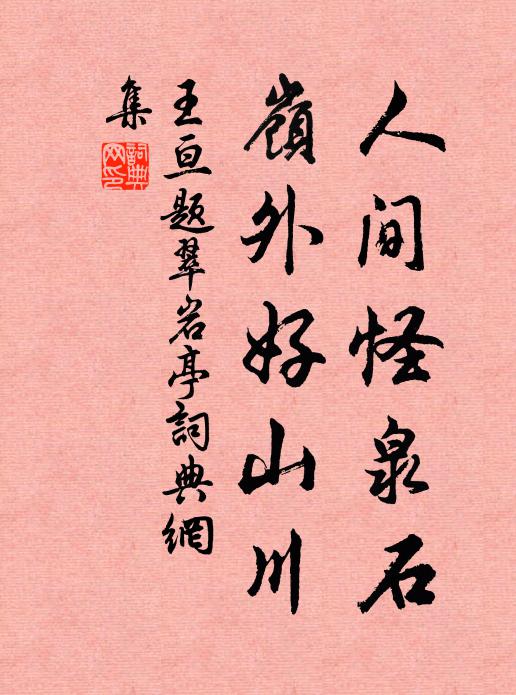 人间怪泉石
嶺外好山川
王亘题翠岩亭詞典網
集
詞典
网印